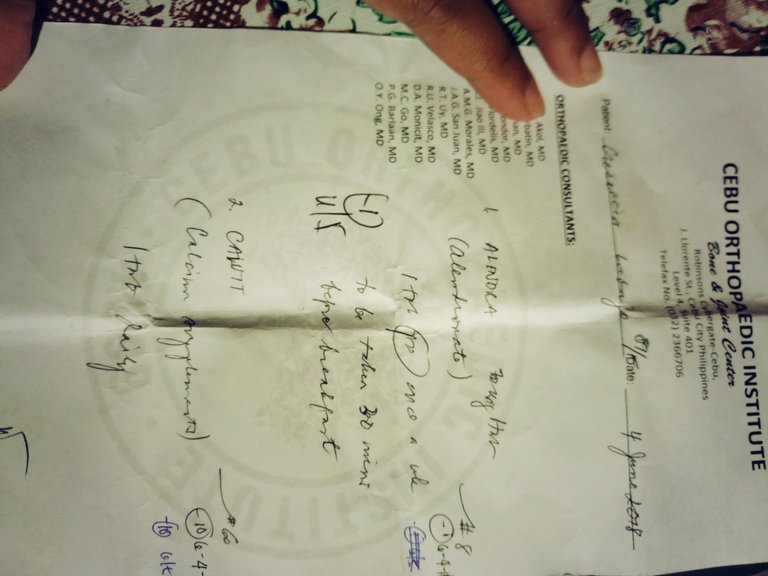 CEBU ORTHOPAEDIC INSTITUTE
Bone & Joint Center
Robinsons Cybergate Cebu,
Level 4, Suite 401
J. Llorente St., Cebu City Philippines
Telefax No. (032) 2366706
Patient: Date: 4 June 2018
ORTHOPAEDIC CONSULTANTS:
Akol, MD
MD
MD
MD
MD
Jiao III, MD
A.M.G. Morales, MD
J.A.G. San Juan, MD
R.T. Uy, MD
R.U. Velasco, MD
D.A. Monicit, MD
M.C. Go, MD
P.G. Barlaan, MD
O.Y. Ong, MD
1. ALENDRA 70mg/tab #8
(Alendronate)
1 tab po once a wk
to be taken 30 mins
before breakfast
2. CAVIT #60
(Calcium supplements)
1 tab daily